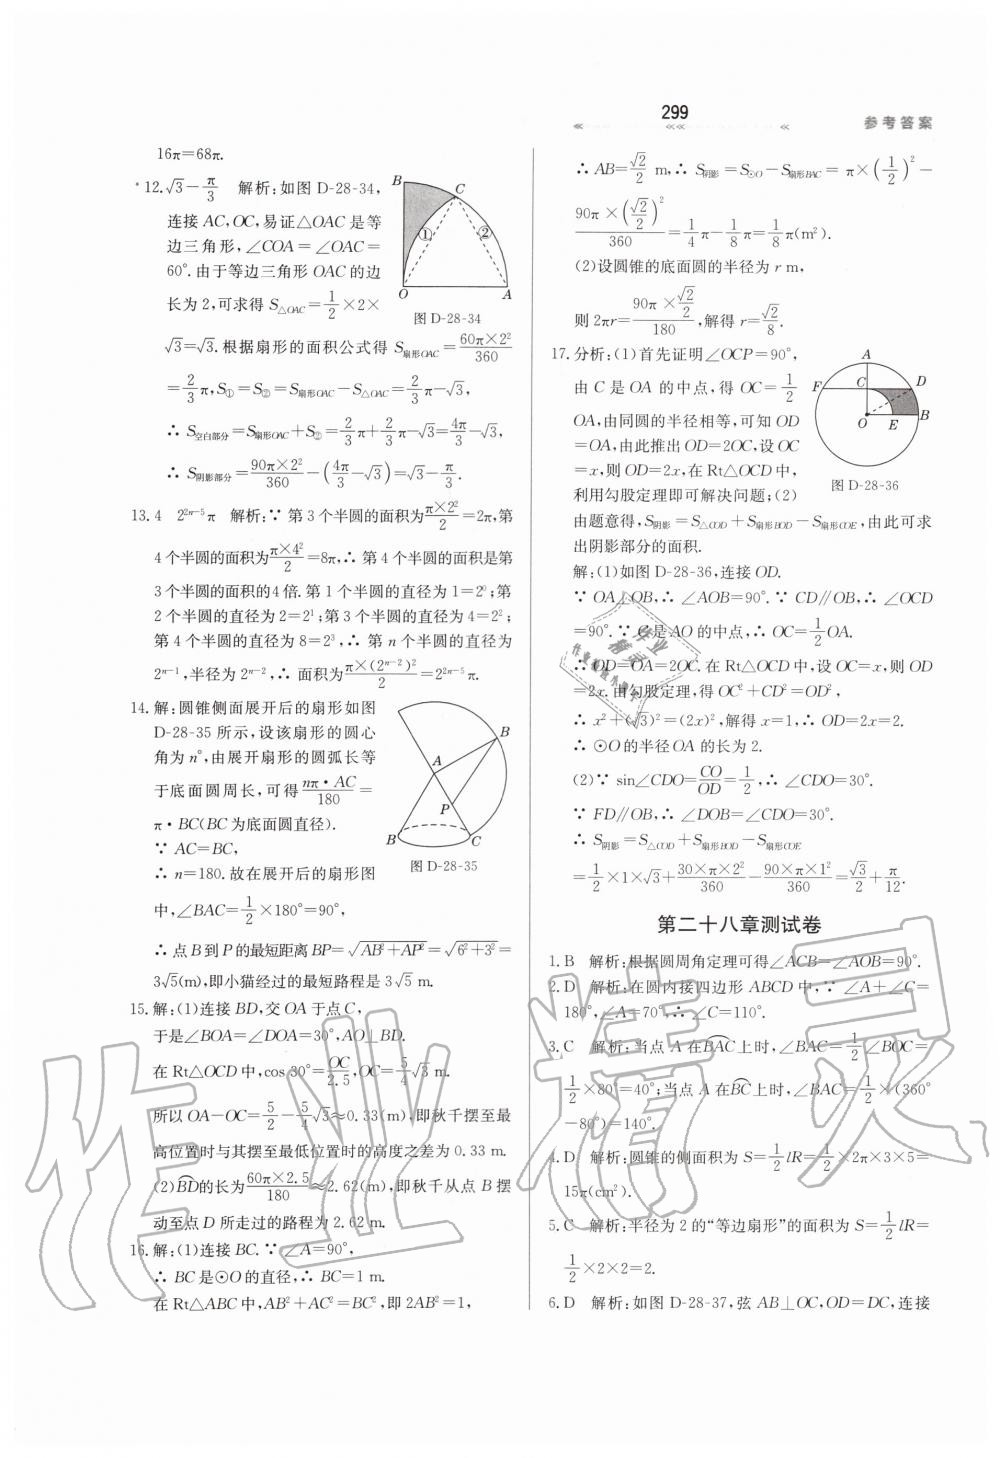 299
参考答案
16π=68π.
12.√3－π/3　解析:如图 D-28-34,
连接 AC,OC,易证△OAC 是等
边三角形,∠COA=∠OAC=
60°.由于等边三角形 OAC 的边
长为 2,可求得 S△OAC=1/2×2×
√3=√3.根据扇形的面积公式得 S扇形OAC=60π×2²/360
=2/3π,S①=S②=S扇形OAC－S△OAC=2/3π－√3,
∴ S空白部分=S扇形OAC+S②=2/3π+2/3π－√3=4π/3－√3,
∴ S阴影部分=90π×2²/360－(4π/3－√3)=√3－π/3.
B
C
①
②
O
A
图 D-28-34
13.4　2²ⁿ⁻⁵π　解析:∵ 第 3 个半圆的面积为π×2²/2=2π,第
4 个半圆的面积为π×4²/2=8π,∴ 第 4 个半圆的面积是第
3 个半圆的面积的 4 倍. 第 1 个半圆的直径为 1=2⁰;第
2 个半圆的直径为 2=2¹;第 3 个半圆的直径为 4=2²;
第 4 个半圆的直径为 8=2³,∴ 第 n 个半圆的直径为
2ⁿ⁻¹,半径为 2ⁿ⁻²,∴ 面积为π×(2ⁿ⁻²)²/2=2²ⁿ⁻⁵π.
14.解:圆锥侧面展开后的扇形如图
D-28-35 所示,设该扇形的圆心
角为 n°,由展开扇形的圆弧长等
于底面圆周长,可得nπ·AC/180=
π·BC(BC 为底面圆直径).
∵ AC=BC,
∴ n=180.故在展开后的扇形图
中,∠BAC=1/2×180°=90°,
∴ 点 B 到 P 的最短距离 BP=√(AB²+AP²)=√(6²+3²)=
3√5(m),即小猫经过的最短路程是 3√5 m.
A
B
P
B
C
图 D-28-35
15.解:(1)连接 BD,交 OA 于点 C,
于是∠BOA=∠DOA=30°,AO⊥BD.
在 Rt△OCD 中,cos 30°=OC/2.5,OC=5/4√3 m.
所以 OA－OC=5/2－5/4√3≈0.33(m),即秋千摆至最
高位置时与其摆至最低位置时的高度之差为 0.33 m.
(2)B͡D的长为60π×2.5/180≈2.62(m),即秋千从点 B 摆
动至点 D 所走过的路程为 2.62 m.
16.解:(1)连接 BC.∵ ∠A=90°,
∴ BC 是⊙O 的直径,∴ BC=1 m.
在 Rt△ABC 中,AB²+AC²=BC²,即 2AB²=1,
∴ AB=√2/2 m,∴ S阴影=S⊙O－S扇形BAC=π×(1/2)²－
90π×(√2/2)²/360=1/4π－1/8π=1/8π(m²).
(2)设圆锥的底面圆的半径为 r m,
则 2πr=90π×√2/2/180,解得 r=√2/8.
17.分析:(1)首先证明∠OCP=90°,
由 C 是 OA 的中点,得 OC=1/2
OA,由同圆的半径相等,可知 OD
=OA,由此推出 OD=2OC,设 OC
=x,则 OD=2x,在 Rt△OCD 中,
利用勾股定理即可解决问题;(2)
由题意得,S阴影=S△COD+S扇形BOD－S扇形COE,由此可求
出阴影部分的面积.
A
F
C
D
O
E
B
图 D-28-36
解:(1)如图 D-28-36,连接 OD.
∵ OA⊥OB,∴ ∠AOB=90°.∵ CD∥OB,∴ ∠OCD
=90°.∵ C是 AO 的中点,∴ OC=1/2OA.
∴ OD=OA=2OC.在 Rt△OCD 中,设 OC=x,则 OD
=2x.由勾股定理,得 OC²+CD²=OD²,
∴ x²+(√3)²=(2x)²,解得 x=1,∴ OD=2x=2.
∴ ⊙O 的半径 OA 的长为 2.
(2)∵ sin∠CDO=CO/OD=1/2,∴ ∠CDO=30°.
∵ FD∥OB,∴ ∠DOB=∠CDO=30°.
∴ S阴影=S△COD+S扇形BOD－S扇形COE
=1/2×1×√3+30×π×2²/360－90×π×1²/360=√3/2+π/12.
第二十八章测试卷
1.B　解析:根据圆周角定理可得∠ACB=1/2∠AOB=90°.
2.D　解析:在圆内接四边形 ABCD 中,∵ ∠A+∠C=
180°,∠A=70°,∴ ∠C=110°.
3.C　解析:当点 A 在B͡AC上时,∠BAC=1/2∠BOC=
1/2×80°=40°;当点 A 在B͡C上时,∠BAC=1/2×(360°
－80°)=140°.
4.D　解析:圆锥的侧面积为 S=1/2lR=1/2×2π×3×5=
15π(cm²).
5.C　解析:半径为 2 的“等边扇形”的面积为 S=1/2lR=
1/2×2×2=2.
6.D　解析:如图 D-28-37,弦 AB⊥OC,OD=DC,连接
作业精灵
作业
精灵